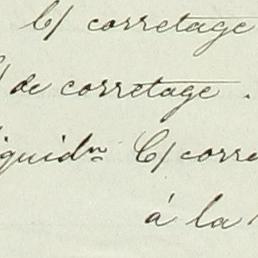 C/ corretage
de corretage.
C/ corre
á la